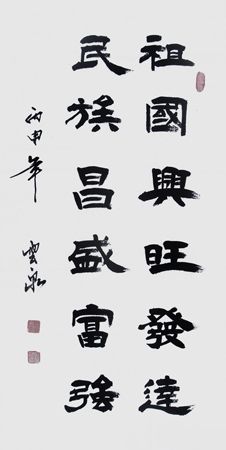 祖國興旺發達
民族昌盛富强
丙申年
雲泉